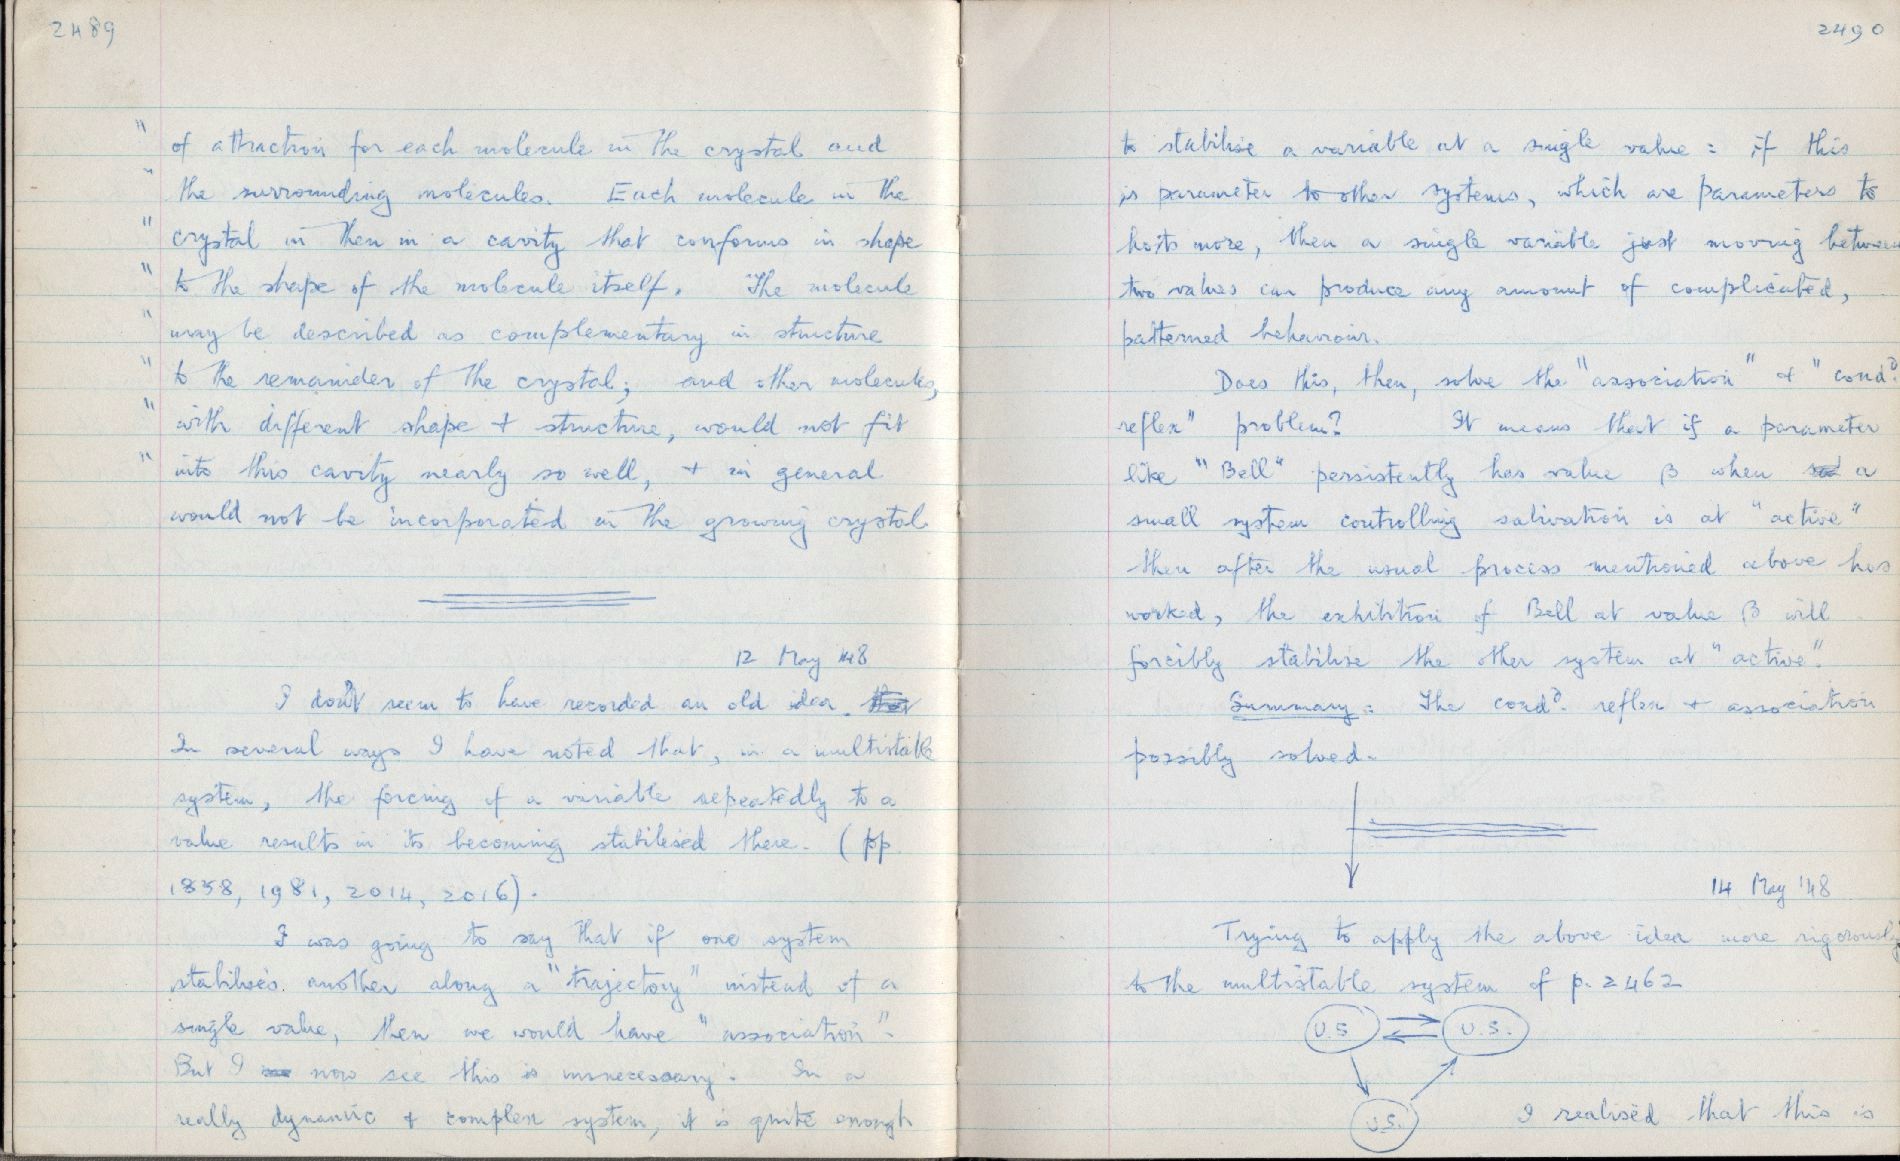 2489
" of attraction for each molecule in the crystal and
" the surrounding molecules. Each molecule in the
" crystal in then in a cavity that conforms in shape
" to the shape of the molecule itself. The molecule
" may be described as complementary in structure
" to the remainder of the crystal; and other molecules,
" with different shape + structure, would not fit
" into this cavity nearly so well, + in general
would not be incorporated in the growing crystal
12 May '48
I don't seem to have recorded an old idea. that
In several ways I have noted that, in a multistable
system, the forcing of a variable repeatedly to a
value results in its becoming stabilised there. (pp
1858, 1981, 2014, 2016).
I was going to say that if one system
stabilises another along a "trajectory" instead of a
single value, then we would have "association".
But I now see this is unnecessary. In a
really dynamic + complex system, it is quite enough
2490
to stabilise a variable at a single value: if this
is parameter to other systems, which are parameters to
hosts more, then a single variable just moving between
two values can produce any amount of complicated,
patterned behaviour.
Does this, then, solve the "association" + "condd.
reflex" problem? It means that if a parameter
like "Bell" persistently has value β when a
small system controlling salivation is at "active"
then after the usual process mentioned above has
worked, the exhibition of Bell at value β will
forcibly stabilise the other system at "active".
Summary: The condd. reflex + association
possibly solved.
14 May '48
Trying to apply the above idea more rigorously
to the multistable system of p. 2462
U.S. U.S.
U.S.
I realised that this is